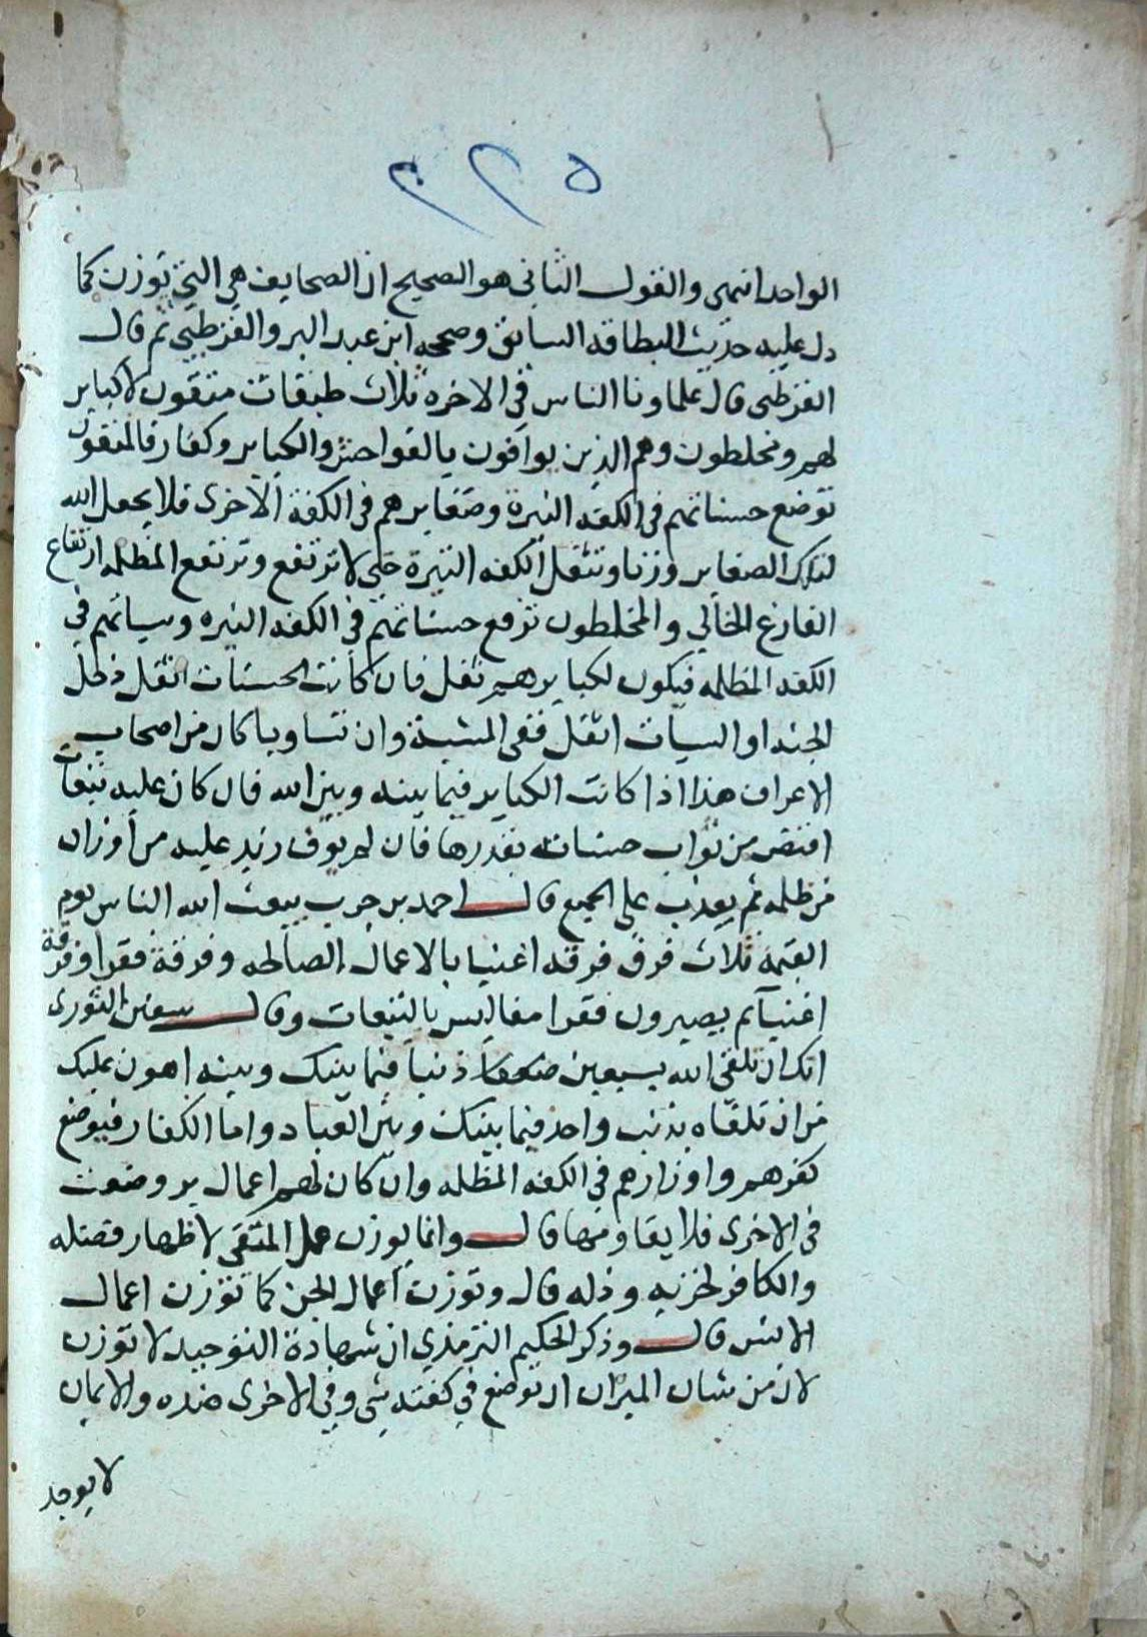 ٢٢٥
الواحد انتهى والقول الثاني هو الصحيح ان الصحايف هي التي توزن كما
دل عليه حديث البطاقه السابق وصححه ابن عبد البر والقرطبي ثم قال
القرطبي قال علماونا الناس في الاخرة ثلاث طبقات متقون لا كباير
لهم ومخلطون وهم الذين يوافون بالفواحش والكباير وكفار فالمتقون
توضع حسناتهم في الكفه النيرة وصغايرهم في الكفة الاخرى فلا يجعل الله
لتلك الصغاير وزنا وتثقل الكفه النيرة حتى لا ترتفع وترتفع المظلمه ارتفاع
الفارغ الخالي والمخلطون توضع حسناتهم في الكفه النيره وسياتهم في
الكفه المظلمه فيكون لكبايرهم ثقل فان كانت الحسنات اثقل دخل
الجنه او السيات اثقل ففي المشية وان تساويا كان من اصحاب
الاعراف هذا اذا كانت الكباير فيما بينه وبين الله فان كان عليه تبعات
اقتص من ثواب حسناته بقدرها فان لم يوف زيد عليه من اوزان
من ظلمه ثم يعذب على الجميع قال احمد بن حرب يبعث الله الناس يوم
القيمة ثلاث فرق فرقه اغنيا بالاعمال الصالحه وفرقة فقرا وفرقة
اغنيا ثم يصيرون فقرا مفاليس بالتبعات وقال سفين الثورى
انك ان تلقى الله بسبعين ذنبا فيما بينك وبينه اهون عليك
من ان تلقاه بذنب واحد فيما بينك وبين العباد واما الكفار فيوضع
كفرهم واوزارهم في الكفه المظلمه وان كان لهم اعمال بر وضعت
في الاخرى فلا يقاومها قال وانما يوزن عمل المتقي لاظهار فضله
والكافر لخزيه وذله قال وتوزن اعمال الجن كما توزن اعمال
الانس قال وذكر الحكيم الترمذي ان شهادة التوحيد لا توزن
لان من شان الميزان ان توضع في كفته شي وفي الاخرى ضده والايمان
لا يوجد